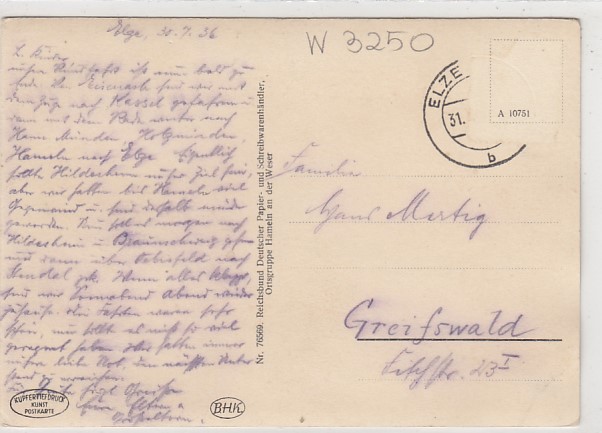 Elze, 30.7.36
W 3250
L. Kinder
unsere Rundfahrt ist nun bald zu
Ende. Von Eisenach sind wir mit
dem Zuge nach Kassel gefahren u
dann mit dem Rade weiter nach
Hann Münden, Holzminden,
Hameln nach Elze. Eigentlich
sollte Hildesheim unser Ziel sein,
aber wir hatten bis Hameln viel
Gegenwind u. sind deshalb müde
geworden. Nun soll es morgen nach
Hildesheim u Braunschweig gehen
und dann über Oebisfeld nach
Stendal Wenn alles klappt,
sind wir Sonnabend Abend wieder
zuhause. Die Fahrten waren sehr
schön, nur sollt es nicht so viel
geregnet haben. Wir hatten immer
unsere liebe Not, den nächsten Unter
stand zu erreichen.
Grüße
Eure Eltern u
Großeltern.
ELZE
31.
b
A 10751
Familie
Hans Mertig
Greifswald
Fischstr. 23 I
Nr. 76569. Reichsbund Deutscher Papier- und Schreibwarenhändler,
Ortsgruppe Hameln an der Weser
KUPFERTIEFDRUCK
KUNST
POSTKARTE
BHK